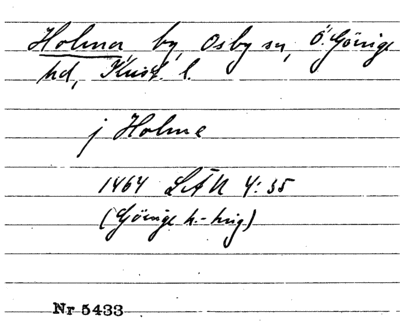 Holma by, Osby sn, Ö. Göinge
hd, Krist. l.
j Holme
1464 LÄN 4:35
(Göinge h.-
Nr 5433